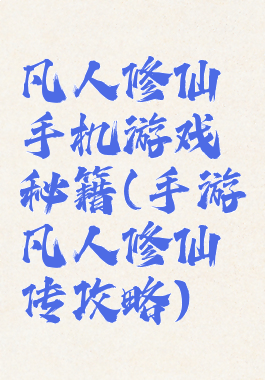 凡人修仙
手机游戏
秘籍(手游
凡人修仙
传攻略)